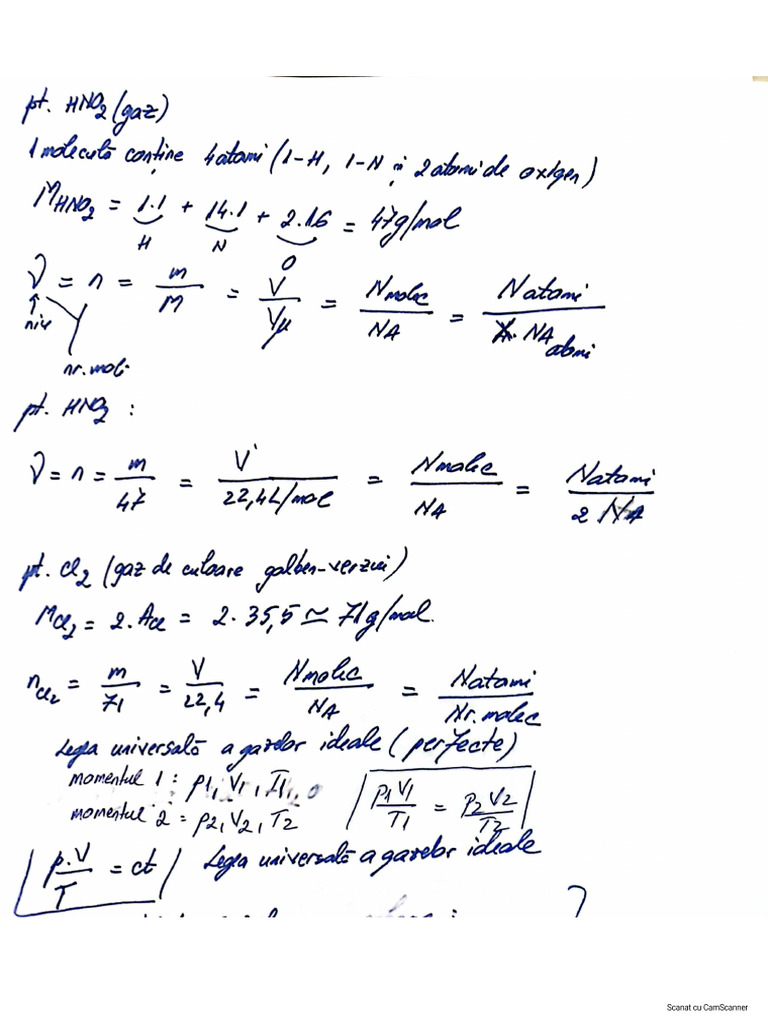 pt. HNO2 (gaz)
1 moleculă conține 4 atomi (1-H, 1-N și 2 atomi de oxigen)
MHNO2 = 1.1 + 14.1 + 2.16 = 47g/mol
H N O
ν = n = m/M = V/Vμ = Nmolec/NA = Natomi/NA atomi
niu
nr. moli
pt. HNO2 :
ν = n = m/47 = V/22,4L/mol = Nmolec/NA = Natomi/2 NA
pt. Cl2 (gaz de culoare galben-verzui)
MCl2 = 2.ACl = 2.35,5 ≃ 71g/mol.
nCl2 = m/71 = V/22,4 = Nmolec/NA = Natomi/Nr.molec
Legea universală a gazelor ideale (perfecte)
momentul 1 : p1, V1, T1
momentul 2 : p2, V2, T2
p1V1/T1 = p2V2/T2
p.V/T = ct Legea universală a gazelor ideale
Scanat cu CamScanner